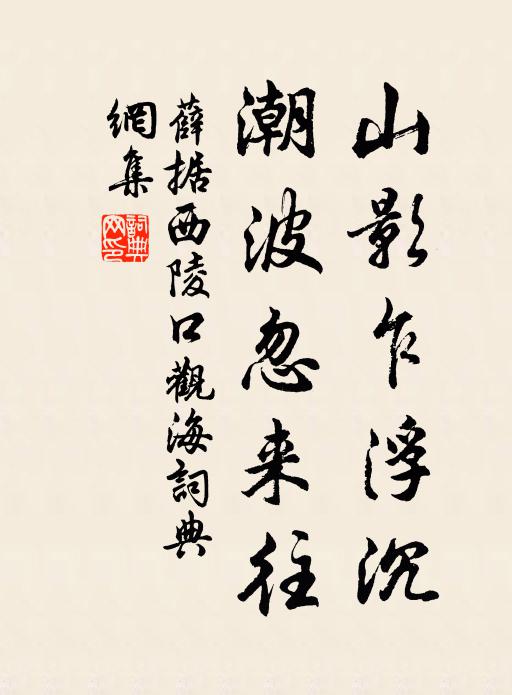 山影乍浮沉
潮波忽来往
薛据西陵口觀海詞典
網集
詞典
網印